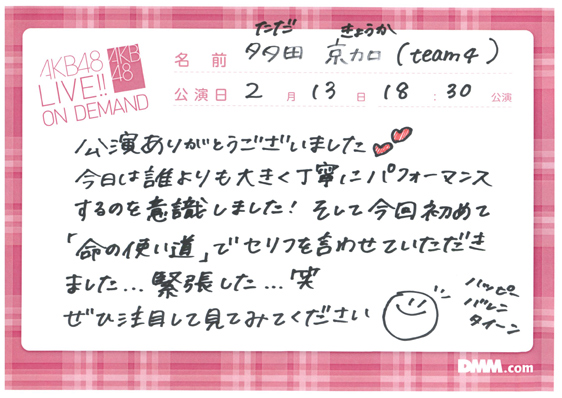 AKB48
LIVE!!
ON DEMAND
AKB
48
ただだ きょうか
名前 多田 京加 (team4)
公演日 2月13日 18:30 公演
公演ありがとうございました
今日は誰よりも大きく丁寧にパフォーマンス
するのを意識しました! そして今回初めて
「命の使い道」でセリフを言わせていただき
ました…緊張した…笑
ぜひ注目して見てみてください
ハッピー
バレン
タイーン
DMM.com